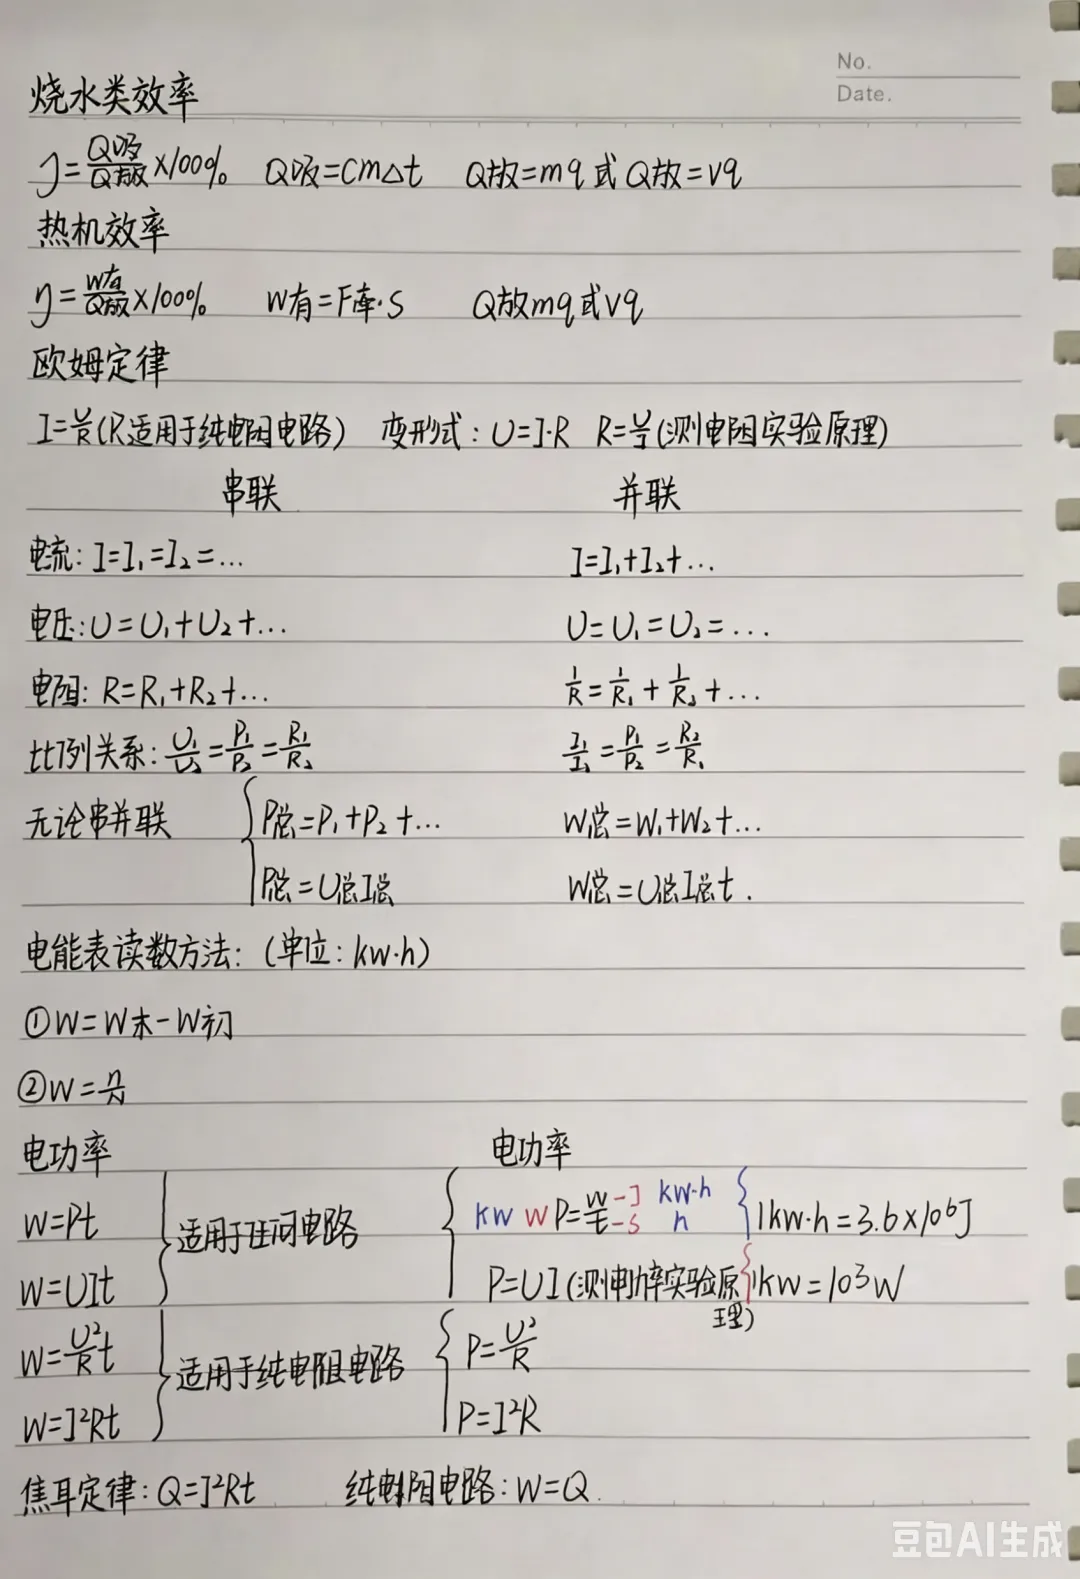 No.
Date.
烧水类效率
η=Q吸/Q放×100% Q吸=cm△t Q放=mq或Q放=vq
热机效率
η=W有/Q放×100% W有=F牵·S Q放mq或vq
欧姆定律
I=U/R(R适用于纯电阻电路) 变形式:U=I·R R=U/I(测电阻实验原理)
串联 并联
电流:I=I₁=I₂=… I=I₁+I₂+…
电压:U=U₁+U₂+… U=U₁=U₂=…
电阻:R=R₁+R₂+… 1/R=1/R₁+1/R₂+…
比列关系:U₁/U₂=P₁/P₂=R₁/R₂ I₁/I₂=P₁/P₂=R₂/R₁
无论串并联 P总=P₁+P₂+… W总=W₁+W₂+…
P总=U总I总 W总=U总I总t.
电能表读数方法:(单位:kw·h)
①W=W末-W初
②W=n/N
电功率 电功率
W=Pt 适用于任何电路 kw w P=W/t -J -s kw·h h 1kw·h=3.6×10⁶J
W=UIt P=UI(测电功率实验原理) 1kw=10³W
W=U²/R t 适用于纯电阻电路 P=U²/R
W=I²Rt P=I²R
焦耳定律:Q=I²Rt 纯电阻电路:W=Q.
豆包AI生成